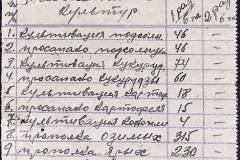 культур 1 раз в га 2 раз в га
1 культивация подсолн. 46 –
2 просапано подсолнуха 46 –
3 Культивация кукуруд. 74 –
4 просапано кукурудзы 60 –
5 культивация картоф. 18 –
6 просапано картофеля 15 –
7 культивация 4 –
8 прополка озимых 315 –
9 прополка ярых 230 –